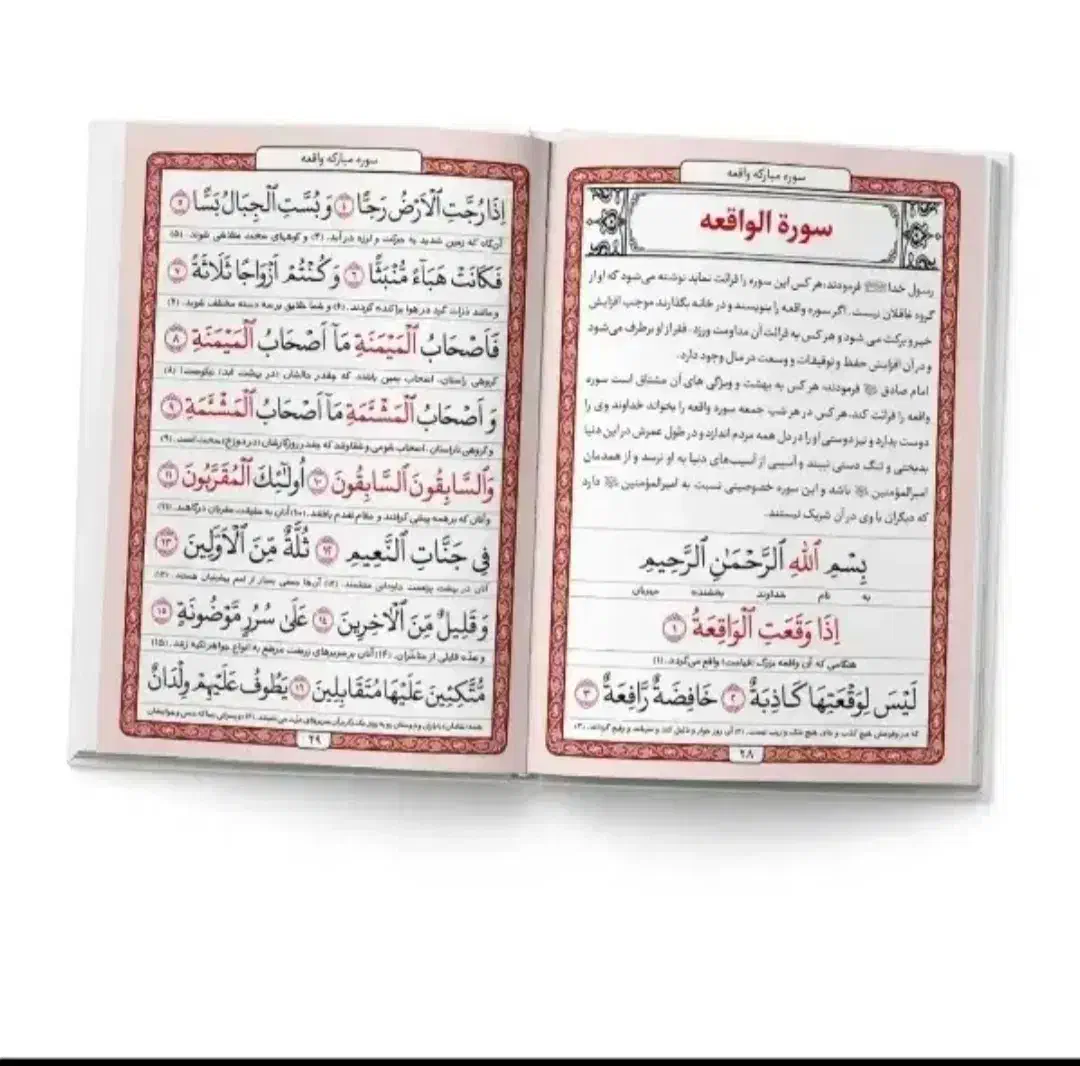 سوره مبارکه واقعه
سورة الواقعه
رسول خدا ﷺ فرمودند، هر کس این سوره را قرائت نماید نوشته می‌شود که او از
گروه غافلان نیست. اگر سوره واقعه را بنویسند و در خانه بگذارند، موجب افزایش
خیر و برکت می شود و هر کس به قرائت آن مداومت ورزد، فقر از او برطرف می‌شود
و در آن افزایش حفظ و توفیقات و وسعت در مال وجود دارد.
امام صادق فرمودند، هر کس به بهشت و ویژگی های آن مشتاق است سوره
واقعه را قرائت کند. هر کس در هر شب جمعه سوره واقعه را بخواند خداوند وی را
دوست بدارد و نیز دوستی او را در دل همه مردم اندازد و در طول عمرش در این دنیا
بدبختی و تنگ دستی نبیند و آسیبی از آسیب‌های دنیا به او نرسد و از همدمان
امیرالمؤمنین باشد و این سوره خصوصیتی نسبت به امیرالمؤمنین دارد
که دیگران با وی در آن شریک نیستند.
بِسْمِ ٱللهِ ٱلرَّحْمَٰنِ ٱلرَّحِیمِ
به نام خداوند بخشنده مهربان
اِذَا وَقَعَتِ ٱلْوَاقِعَةُ ﴿۱﴾
هنگامی که آن واقعه بزرگ (قیامت) واقع می‌گردد. (۱)
لَیْسَ لِوَقْعَتِهَا کَاذِبَةٌ ﴿۲﴾ خَافِضَةٌ رَّافِعَةٌ ﴿۳﴾
که در وقوعش هیچ کذب و نیست. (۲) آن روز خوار و ذلیل کند و سربلند و رفیع گرداند. (۳)
۲۸
سوره مبارکه واقعه
اِذَا رُجَّتِ ٱلْاَرْضُ رَجًّا ﴿۴﴾ وَ بُسَّتِ ٱلْجِبَالُ بَسًّا ﴿۵﴾
آن‌گاه که زمین شدید به حرکت و لرزه در آید. (۴) و کوههای سخت متلاشی شوند. (۵)
فَکَانَتْ هَبَآءً مُّنْبَثًّا ﴿۶﴾ وَ کُنْتُمْ اَزْوَاجًا ثَلَاثَةً ﴿۷﴾
و مانند ذرات گرد در هوا پراکنده گردند. (۶) و شما خلایق بر سه دسته مختلف شوید. (۷)
فَاَصْحَابُ ٱلْمَیْمَنَةِ مَآ اَصْحَابُ ٱلْمَیْمَنَةِ ﴿۸﴾
گروهی راستان، اصحاب یمین باشند که چقدر حالشان (در بهشت ابد) نیکوست! (۸)
وَ اَصْحَابُ ٱلْمَشْئَمَةِ مَآ اَصْحَابُ ٱلْمَشْئَمَةِ ﴿۹﴾
و گروهی ناراستان، اصحاب شومی و شقاوتند که چقدر روزگارشان (در دوزخ) سخت است. (۹)
وَٱلسَّابِقُونَ ٱلسَّابِقُونَ ﴿۱۰﴾ اُولٰٓئِكَ ٱلْمُقَرَّبُونَ ﴿۱۱﴾
و آنان که بر همه پیشی گرفتند و مقام تقدم یافتند. (۱۰) آنان به حقیقت مقربان درگاهند. (۱۱)
فِی جَنَّاتِ ٱلنَّعِیمِ ﴿۱۲﴾ ثُلَّةٌ مِّنَ ٱلْاَوَّلِینَ ﴿۱۳﴾
آنان در بهشت پرنعمت جاودانی متنعمند. (۱۲) آن‌ها جمعی بسیار از امم پیشینیان هستند. (۱۳)
وَ قَلِیلٌ مِّنَ ٱلْاٰخِرِینَ ﴿۱۴﴾ عَلَیٰ سُرُرٍ مَّوْضُونَةٍ ﴿۱۵﴾
و عدّه قلیلی از متأخران. (۱۴) آنان بر سریرهای زربفت مرصّع به انواع جواهر تکیه زنند. (۱۵)
مُتَّکِئِینَ عَلَیْهَا مُتَقَابِلِینَ ﴿۱۶﴾ یَطُوفُ عَلَیْهِمْ وِلْدَانٌ
۲۹